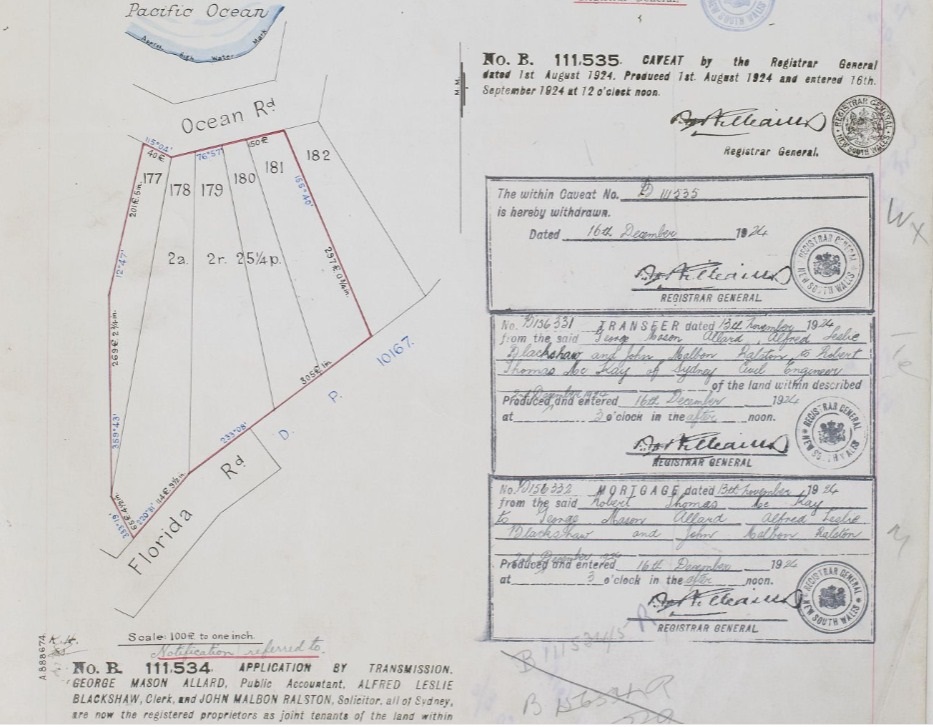 Pacific Ocean
High Water Mark
Ocean Rd
115°04'
40 ft
76°57'
150 ft
177
178
179
180
181
182
201 ft 5 in.
155°40'
12°47'
2a. 2r. 25¼p.
297 ft 0¾ in.
269 ft 2¾ in.
305 ft 1 in.
359°43'
233°08'
D. P. 10167.
Florida Rd
Scale: 100 ft to one inch.
Notification referred to.
A 888674
No. B. 111.534 APPLICATION BY TRANSMISSION.
GEORGE MASON ALLARD, Public Accountant, ALFRED LESLIE
BLACKSHAW, Clerk, and JOHN MALBON RALSTON, Solicitor, all of Sydney,
are now the registered proprietors as joint tenants of the land within
NEW SOUTH WALES
M.M.
No. B. 111.535 CAVEAT by the Registrar General
dated 1st August 1924. Produced 1st. August 1924 and entered 16th.
September 1924 at 12 o'clock noon.
Registrar General.
REGISTRAR GENERAL NEW SOUTH WALES
The within Caveat No. B 111535
is hereby withdrawn.
Dated 16th December 1924
REGISTRAR GENERAL
REGISTRAR GENERAL NEW SOUTH WALES
No. B156331 TRANSFER dated 13th November 1924
from the said George Mason Allard Alfred Leslie
Blackshaw and John Malbon Ralston to Robert
Thomas McKay of Sydney Civil Engineer
of the land within described
Produced and entered 16th December 1924
at 3 o'clock in the after noon.
REGISTRAR GENERAL
REGISTRAR GENERAL NEW SOUTH WALES
No. B156332 MORTGAGE dated 13th November 1924
from the said Robert Thomas McKay
to George Mason Allard Alfred Leslie
Blackshaw and John Malbon Ralston
Produced and entered 16th December 1924
at 3 o'clock in the after noon.
REGISTRAR GENERAL
REGISTRAR GENERAL NEW SOUTH WALES
B 111534/5